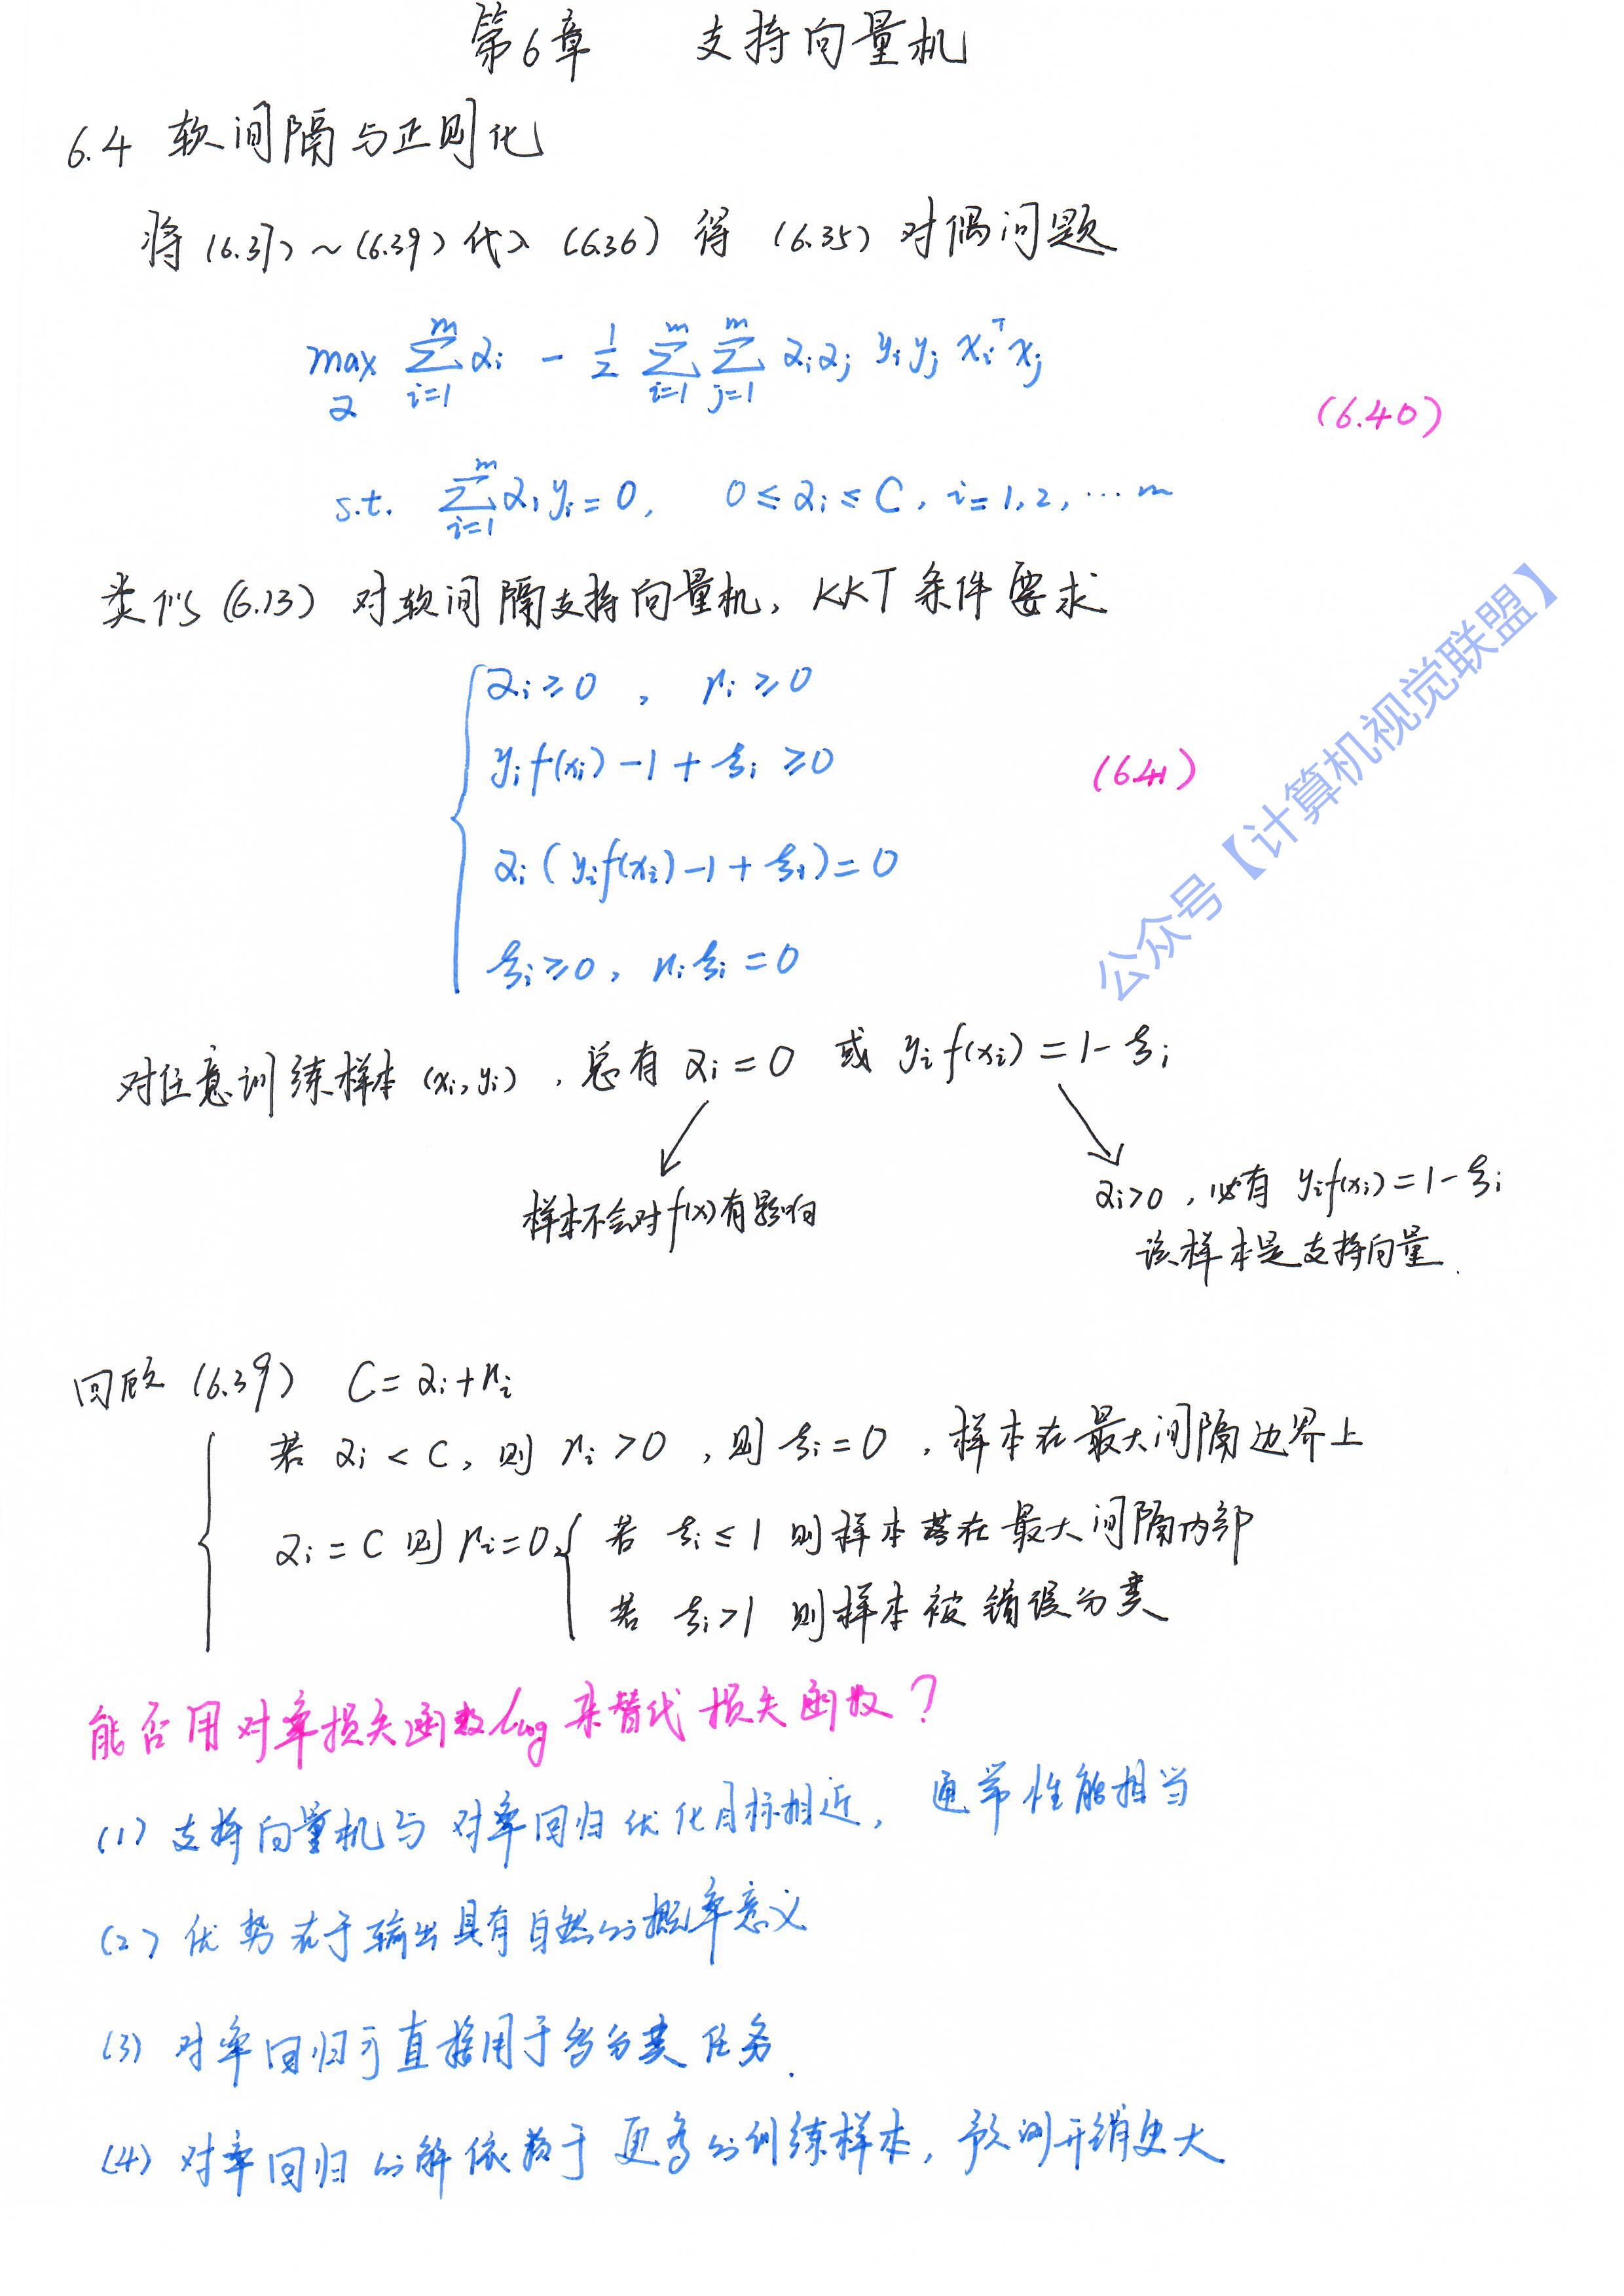 第6章 支持向量机
6.4 软间隔与正则化
将(6.37)~(6.39)代入(6.36)得(6.35)对偶问题
max_α Σ_{i=1}^{m} α_i - 1/2 Σ_{i=1}^{m} Σ_{j=1}^{m} α_i α_j y_i y_j x_i^T x_j
(6.40)
s.t. Σ_{i=1}^{m} α_i y_i = 0, 0 ≤ α_i ≤ C, i=1,2,…m
类似(6.13)对软间隔支持向量机, KKT条件要求
α_i ≥ 0, μ_i ≥ 0
y_i f(x_i) - 1 + ξ_i ≥ 0
(6.41)
α_i (y_i f(x_i) - 1 + ξ_i) = 0
ξ_i ≥ 0, μ_i ξ_i = 0
公众号【计算机视觉联盟】
对任意训练样本(x_i, y_i), 总有 α_i = 0 或 y_i f(x_i) = 1 - ξ_i
样本不会对f(x)有影响
α_i > 0, 必有 y_i f(x_i) = 1 - ξ_i
该样本是支持向量.
回顾(6.39) C = α_i + μ_i
若 α_i < C, 则 μ_i > 0, 则 ξ_i = 0, 样本在最大间隔边界上
α_i = C 则 μ_i = 0, 若 ξ_i ≤ 1 则样本落在最大间隔内部
若 ξ_i > 1 则样本被错误分类
能否用对率损失函数 l_log 来替代损失函数?
(1) 支持向量机与对率回归优化目标相近, 通常性能相当
(2) 优势在于输出具有自然的概率意义
(3) 对率回归可直接用于多分类任务.
(4) 对率回归的解依赖于更多的训练样本, 预测开销更大